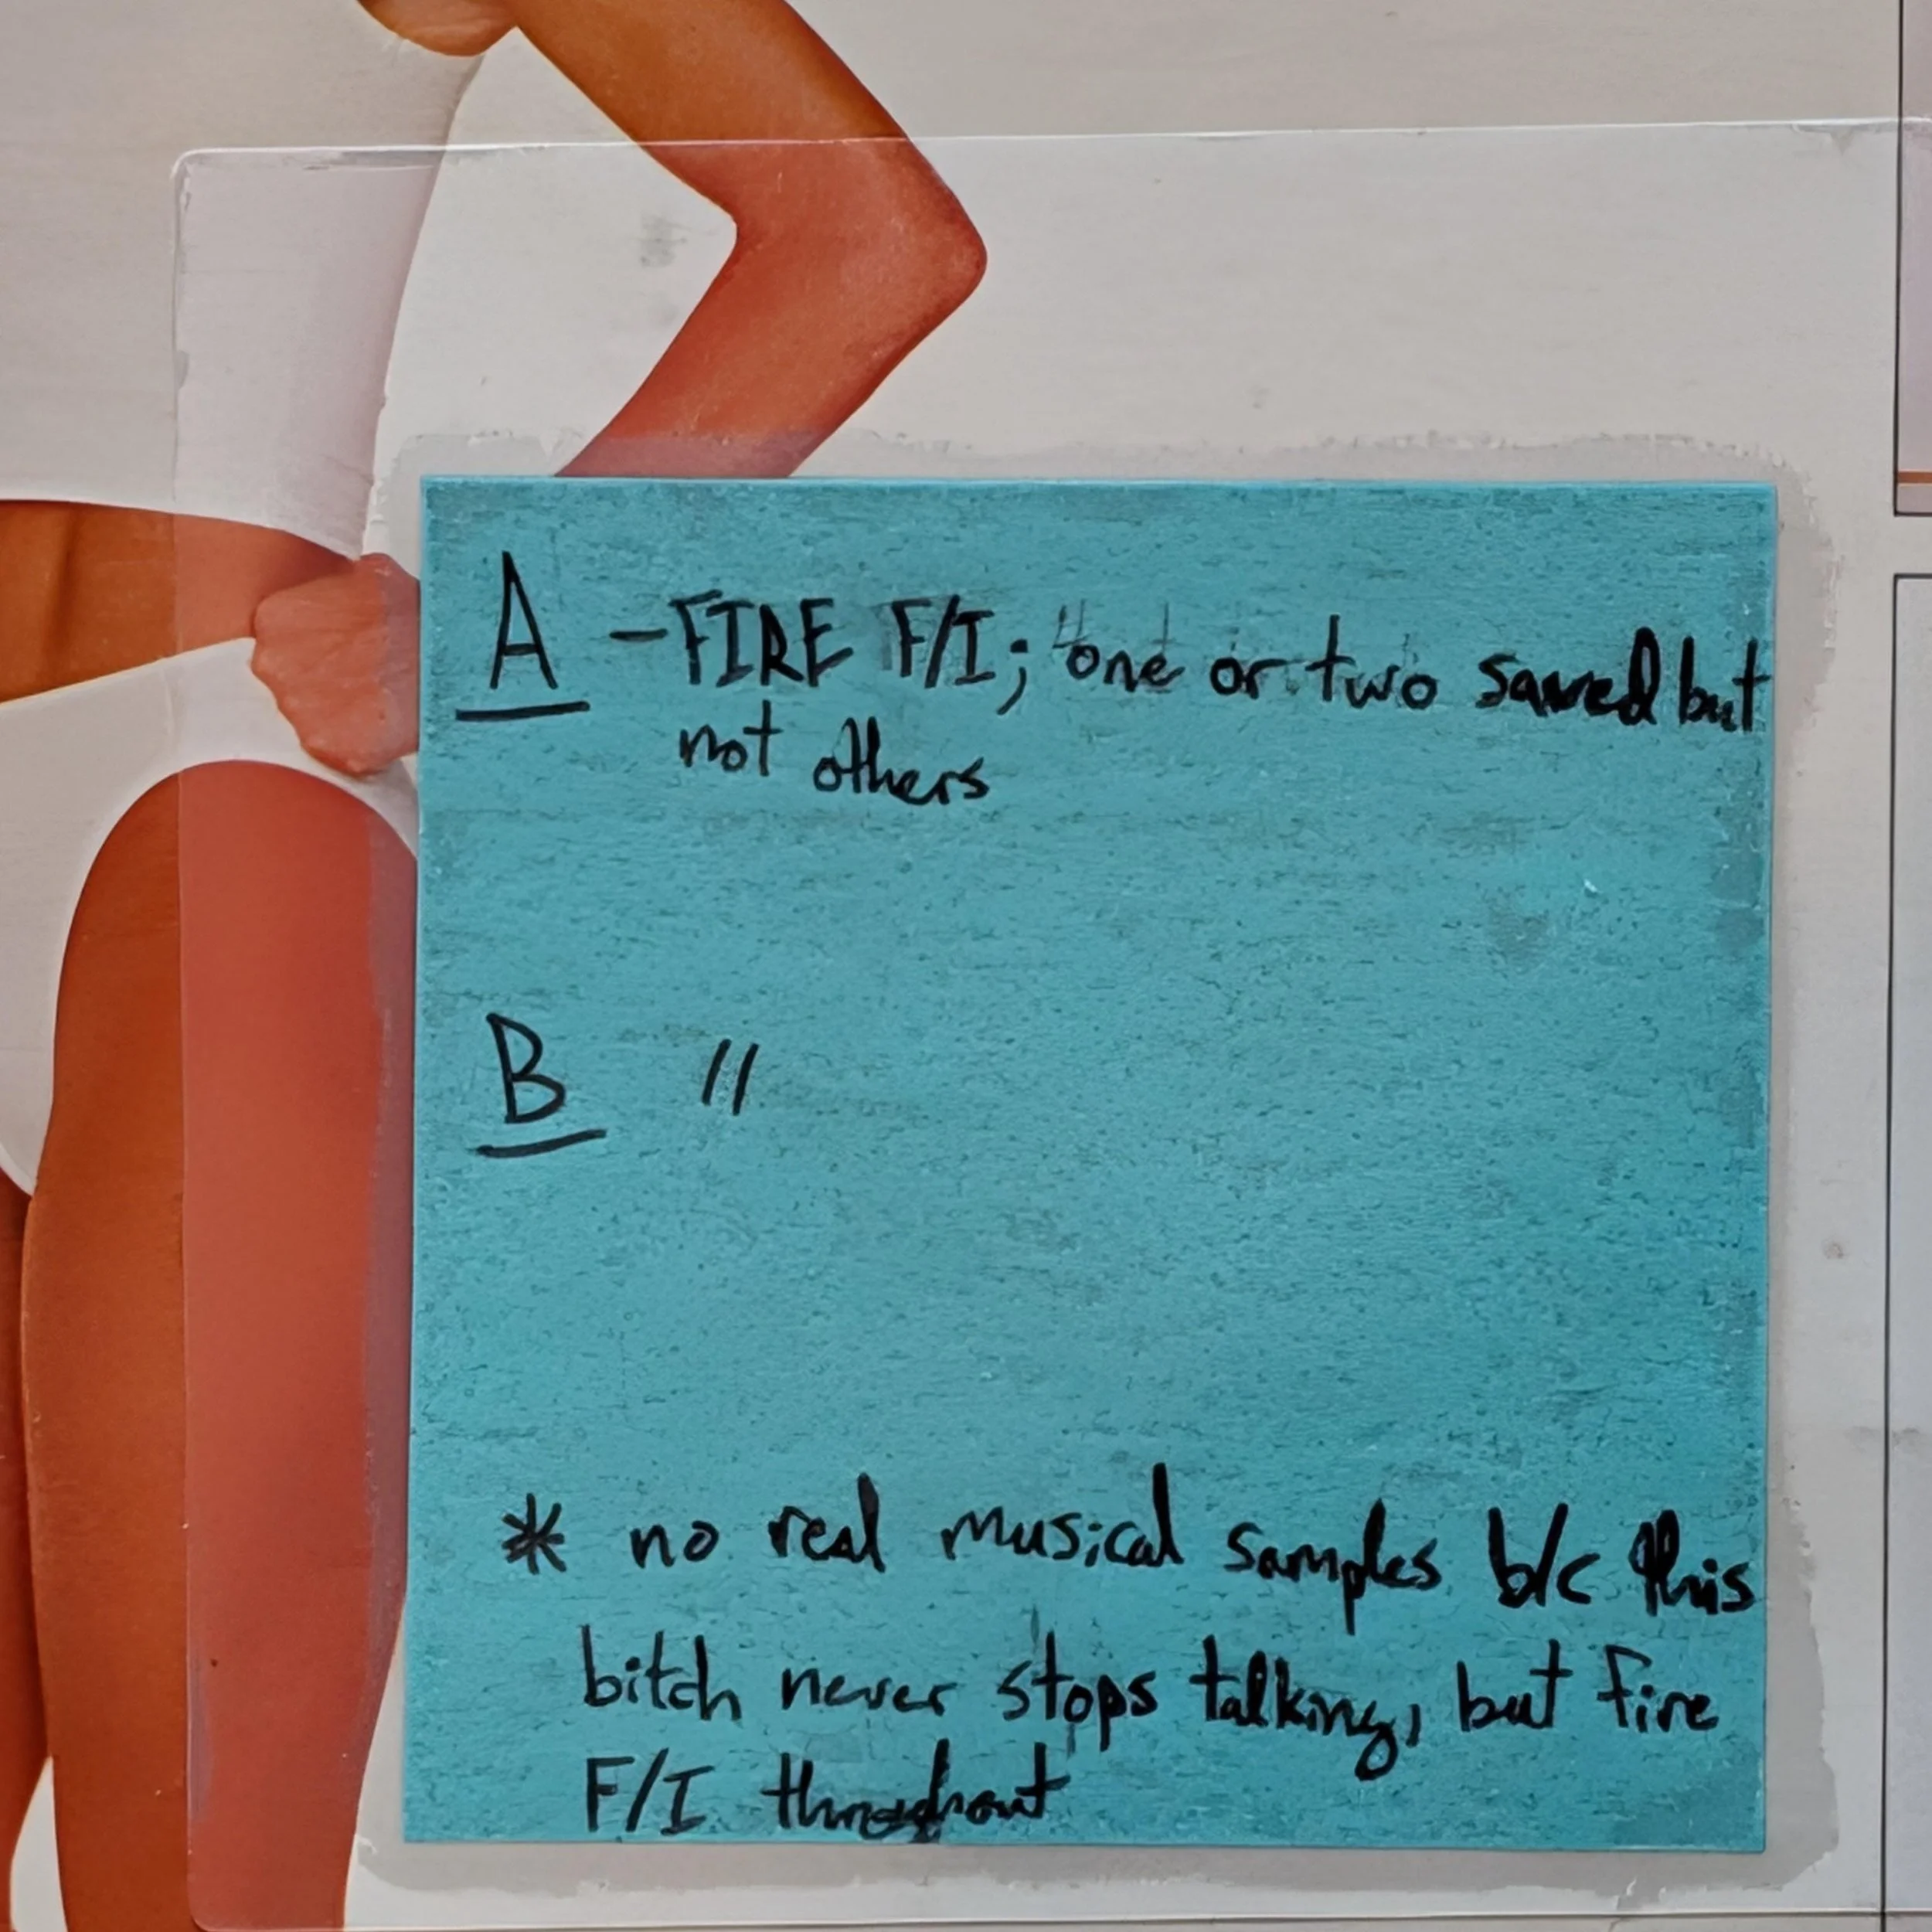 A - FIRE F/I; one or two saved but
not others
B "
* no real musical samples b/c this
bitch never stops talking, but fire
F/I throughout